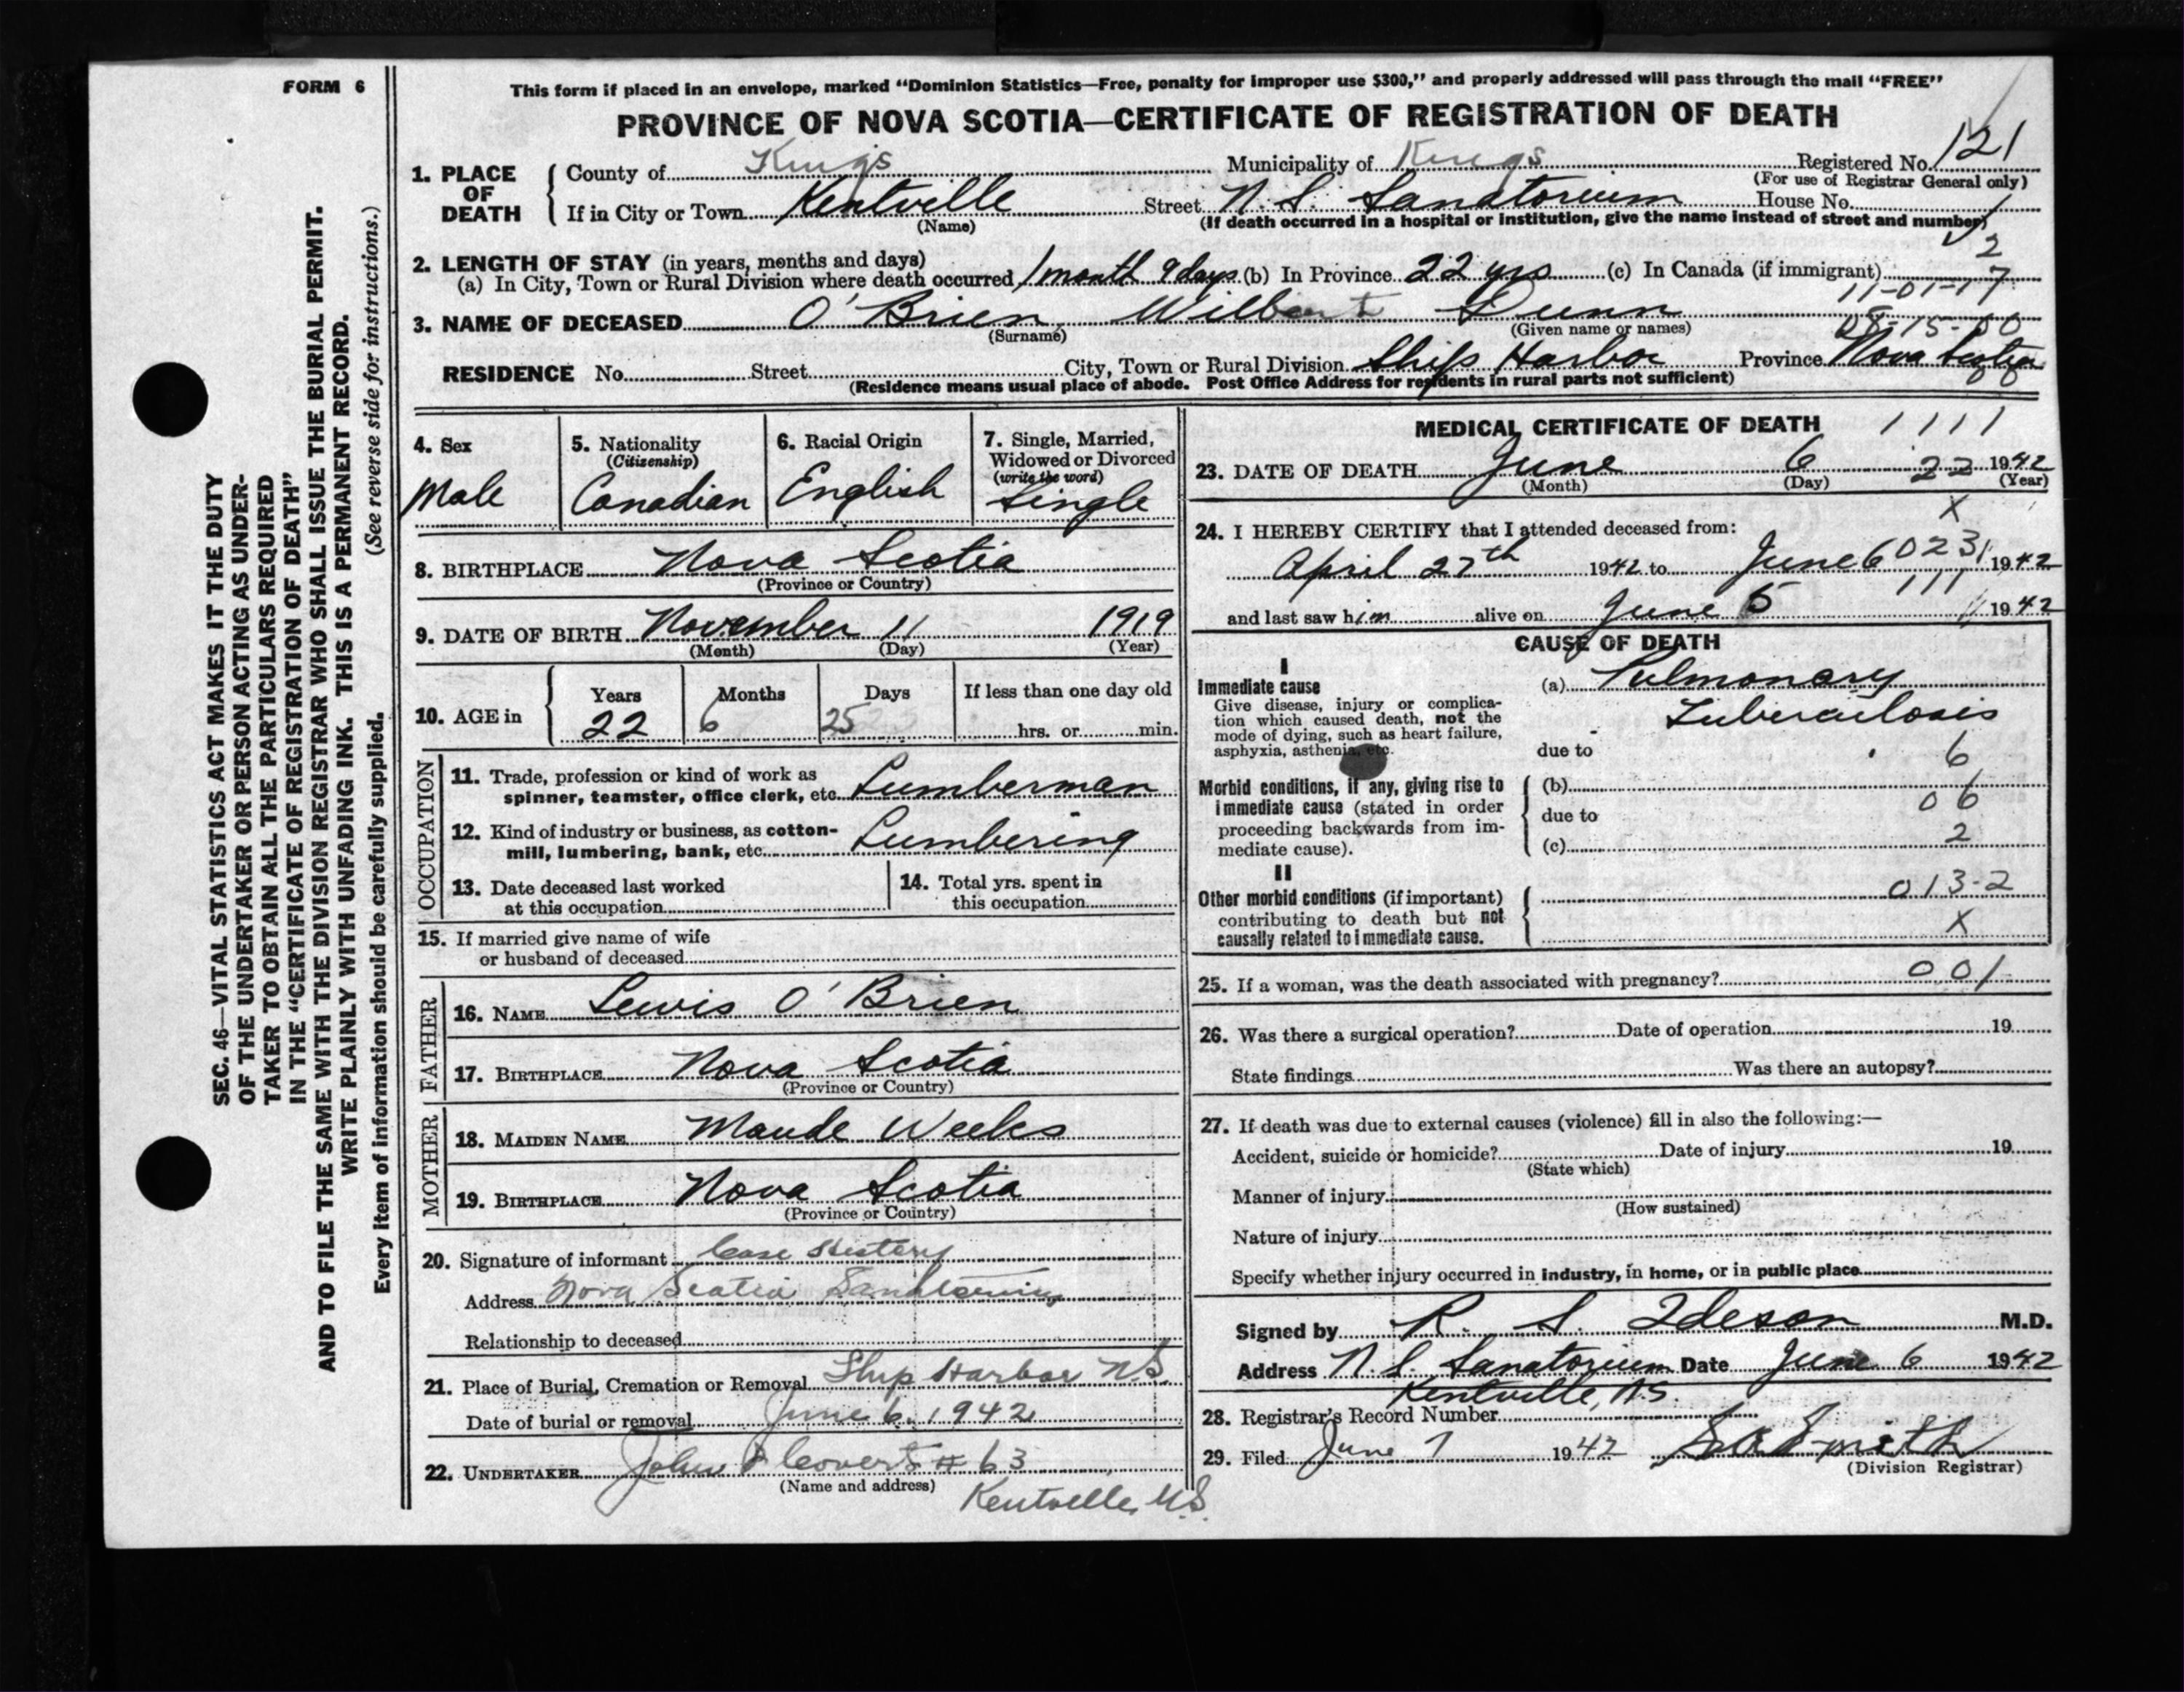 FORM 6
This form if placed in an envelope, marked "Dominion Statistics—Free, penalty for improper use $300," and properly addressed will pass through the mail "FREE"
PROVINCE OF NOVA SCOTIA—CERTIFICATE OF REGISTRATION OF DEATH
SEC. 46—VITAL STATISTICS ACT MAKES IT THE DUTY
OF THE UNDERTAKER OR PERSON ACTING AS UNDER-
TAKER TO OBTAIN ALL THE PARTICULARS REQUIRED
IN THE "CERTIFICATE OF REGISTRATION OF DEATH"
AND TO FILE THE SAME WITH THE DIVISION REGISTRAR WHO SHALL ISSUE THE BURIAL PERMIT.
WRITE PLAINLY WITH UNFADING INK. THIS IS A PERMANENT RECORD.
Every item of information should be carefully supplied. (See reverse side for instructions.)
1. PLACE OF DEATH
County of Kings Municipality of Kings Registered No. 121
(For use of Registrar General only)
If in City or Town Kentville Street N. S. Sanatorium House No.
(Name) (If death occurred in a hospital or institution, give the name instead of street and number)
2. LENGTH OF STAY (in years, months and days) 2
(a) In City, Town or Rural Division where death occurred 1 month 9 days (b) In Province 22 yrs (c) In Canada (if immigrant) 7
11-01-17
3. NAME OF DECEASED O'Brien Wilbert Dunn
(Surname) (Given name or names) 08-15-00
RESIDENCE No. Street City, Town or Rural Division Ship Harbor Province Nova Scotia
(Residence means usual place of abode. Post Office Address for residents in rural parts not sufficient) 00
4. Sex
Male
5. Nationality
(Citizenship)
Canadian
6. Racial Origin
English
7. Single, Married,
Widowed or Divorced
(write the word)
Single
8. BIRTHPLACE Nova Scotia
(Province or Country)
9. DATE OF BIRTH November 11 1919
(Month) (Day) (Year)
10. AGE in
Years Months Days If less than one day old
22 6 25 hrs. or min.
OCCUPATION
11. Trade, profession or kind of work as
spinner, teamster, office clerk, etc. Lumberman
12. Kind of industry or business, as cotton-
mill, lumbering, bank, etc. Lumbering
13. Date deceased last worked
at this occupation
14. Total yrs. spent in
this occupation
15. If married give name of wife
or husband of deceased
FATHER
16. NAME Lewis O'Brien
17. BIRTHPLACE Nova Scotia
(Province or Country)
MOTHER
18. MAIDEN NAME Maude Weeks
19. BIRTHPLACE Nova Scotia
(Province or Country)
20. Signature of informant Case History
Address Nova Scotia Sanatorium
Relationship to deceased
21. Place of Burial, Cremation or Removal Ship Harbor N.S.
Date of burial or removal June 6, 1942
22. UNDERTAKER John Covert # 63
(Name and address) Kentville, N.S.
MEDICAL CERTIFICATE OF DEATH 1111
23. DATE OF DEATH June 6 22 1942
(Month) (Day) (Year)
X
24. I HEREBY CERTIFY that I attended deceased from:
April 27th 1942 to June 6 023 1942
111
and last saw him alive on June 5 1942
CAUSE OF DEATH
I
Immediate cause
Give disease, injury or complica-
tion which caused death, not the
mode of dying, such as heart failure,
asphyxia, asthenia, etc.
(a) Pulmonary
Tuberculosis
due to 6
Morbid conditions, if any, giving rise to
immediate cause (stated in order
proceeding backwards from im-
mediate cause).
(b)
due to 06
(c) 2
II
Other morbid conditions (if important)
contributing to death but not
causally related to immediate cause.
013-2
X
25. If a woman, was the death associated with pregnancy? 001
26. Was there a surgical operation? Date of operation 19
State findings Was there an autopsy?
27. If death was due to external causes (violence) fill in also the following:—
Accident, suicide or homicide? Date of injury 19
(State which)
Manner of injury
(How sustained)
Nature of injury
Specify whether injury occurred in industry, in home, or in public place
Signed by R. S. Ideson M.D.
Address N. S. Sanatorium Date June 6 1942
Kentville, N.S.
28. Registrar's Record Number
29. Filed June 7 1942 Smith
(Division Registrar)